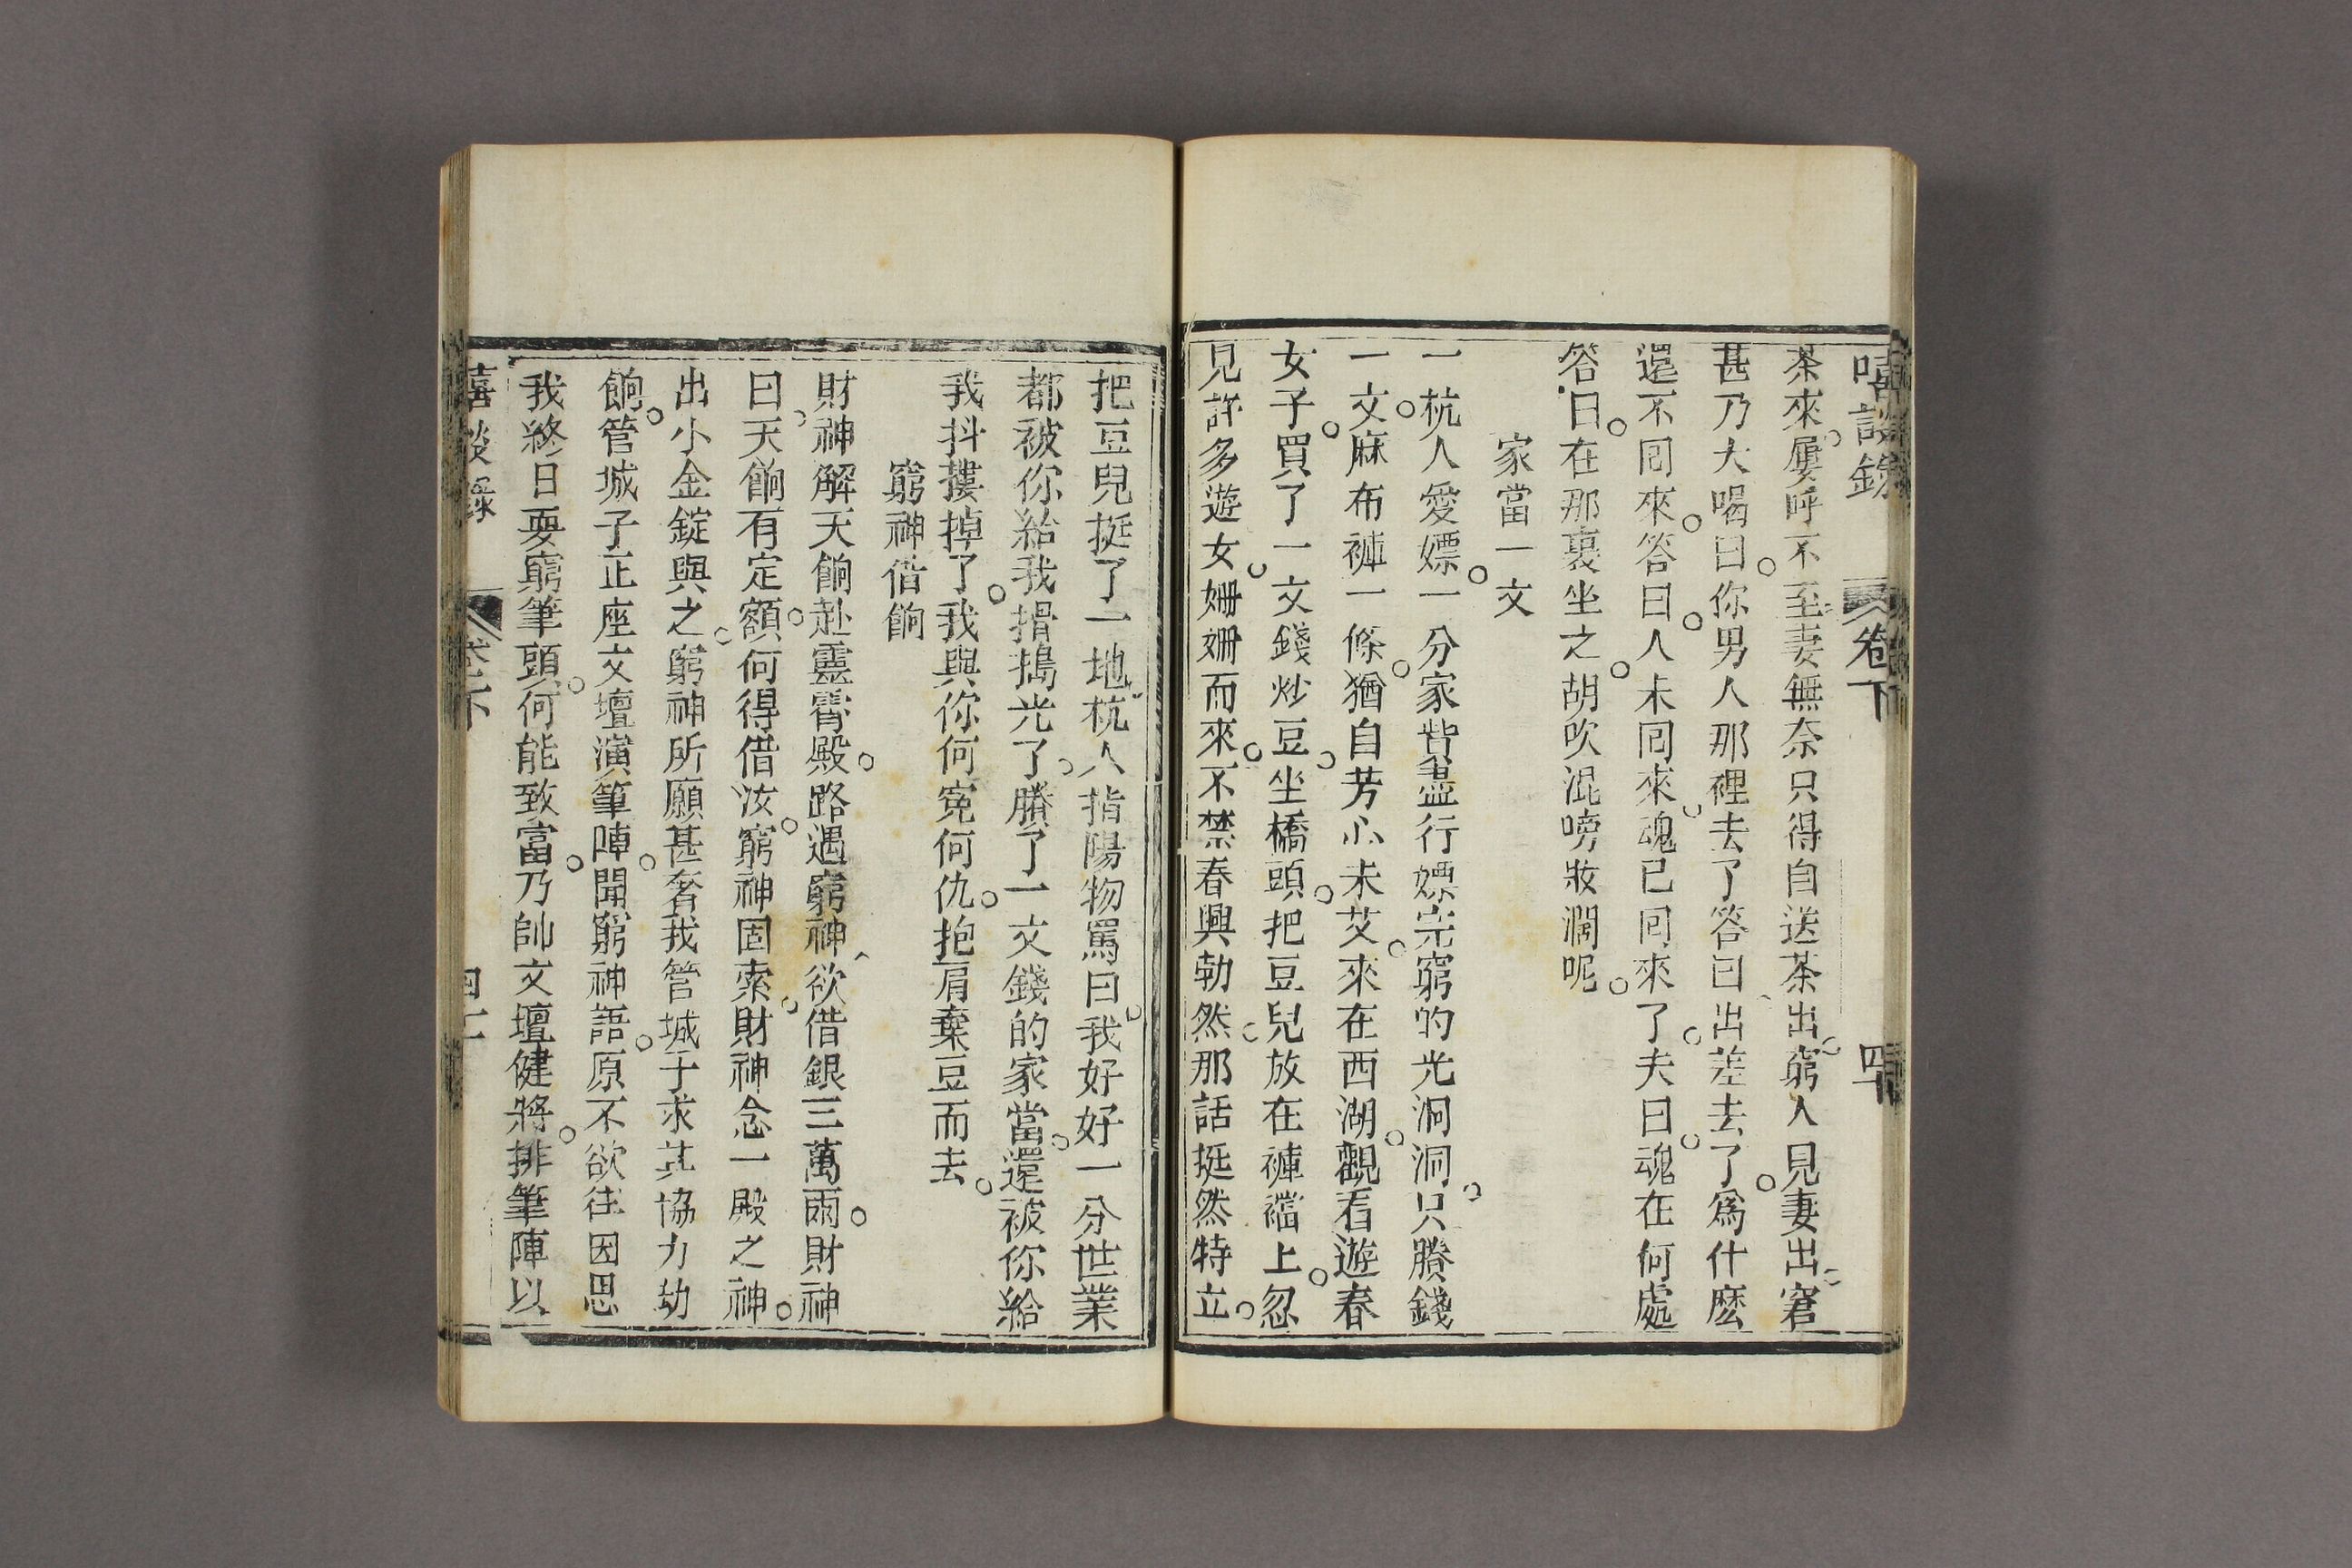 嘻談錄 卷下 四十
茶來屢呼不至妻無奈只得自送茶出窮人見妻出窘
甚乃大喝曰你男人那裡去了答曰出差去了爲什麽
還不囘來答曰人未囘來魂已囘來了夫曰魂在何處
答曰在那裏坐之胡吹混嗙妝濶呢
家當一文
一杭人愛嫖一分家貲盡行嫖完窮的光洞洞只賸錢
一文麻布褲一條猶自芳心未艾來在西湖觀看遊春
女子買了一文錢炒豆坐橋頭把豆兒放在褲襠上忽
見許多遊女姍姍而來不禁春興勃然那話挺然特立
把豆兒挺了一地杭人指陽物罵曰我好好一分世業
都被你給我搰搗光了賸了一文錢的家當還被你給
我抖摟掉了我與你何寃何仇抱肩棄豆而去
窮神借餉
財神解天餉赴靈霄殿路遇窮神欲借銀三萬兩財神
曰天餉有定額何得借汝窮神固索財神念一殿之神
出小金錠與之窮神所願甚奢我管城子求其協力劫
餉管城子正座文壇演筆陣聞窮神語原不欲往因思
我終日耍窮筆頭何能致富乃帥文壇健將排筆陣以
嘻談錄 卷下